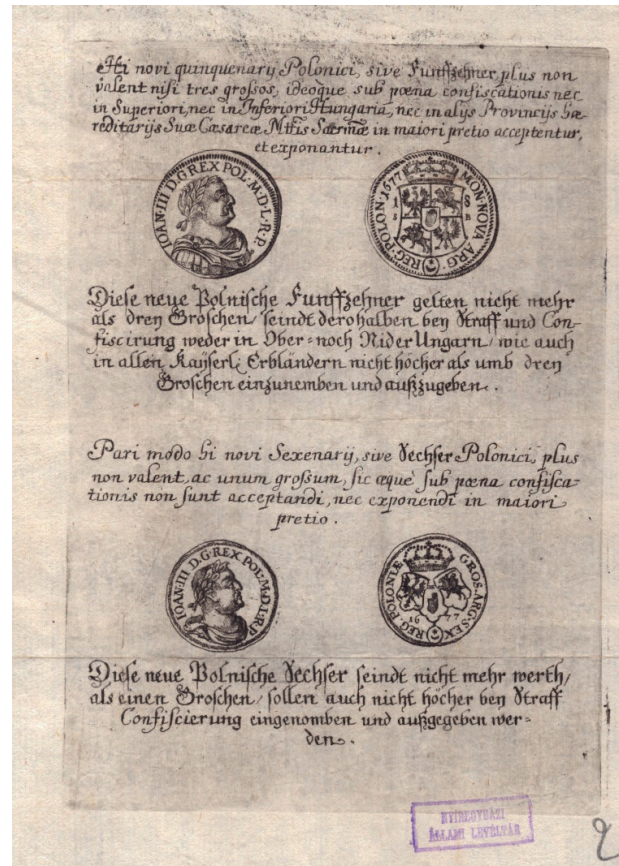 Hi novi quinquenarij Polonici, sive Funffzehner, plus non
valent nisi tres grossos, ideoque sub pœna confiscationis nec
in Superiori, nec in Inferiori Hungaria, nec in alijs Provincijs hæ-
reditarijs Suæ Cæsareæ Mttis Sacrmæ in maiori pretio acceptentur,
et exponantur.
IOAN·III·D·G·REX·POL·M·D·L·R·P·
MON·NOVA·ARG·REG·POLON·1677
1 8
S B
Diese neue Polnische Funffzehner gelten nicht mehr
als dreÿ Groschen/ seindt derohalben beÿ Straff und Con-
fiscirung weder in Ober= noch Nider Ungarn/ wie auch
in allen Kaÿserl: Erbländern nicht höcher als umb dreÿ
Groschen einzunemben und außzugeben.
Pari modo hi novi Sexenarij, sive Sechser Polonici, plus
non valent, ac unum grossum, sic æque sub pœna confisca-
tionis non sunt acceptandi, nec exponendi in maiori
pretio.
IOAN·III·D·G·REX·POL·M·D·L·R·P
GROS·ARG·SEX REG·POLONIE
16 77
Diese neue Polnische Sechser seindt nicht mehr werth/
als einen Groschen/ sollen auch nicht höcher beÿ Straff
Confiscierung eingenomben und außgegeben wer-
den.
NYÍREGYHÁZI
ÁLLAMI LEVÉLTÁR
2